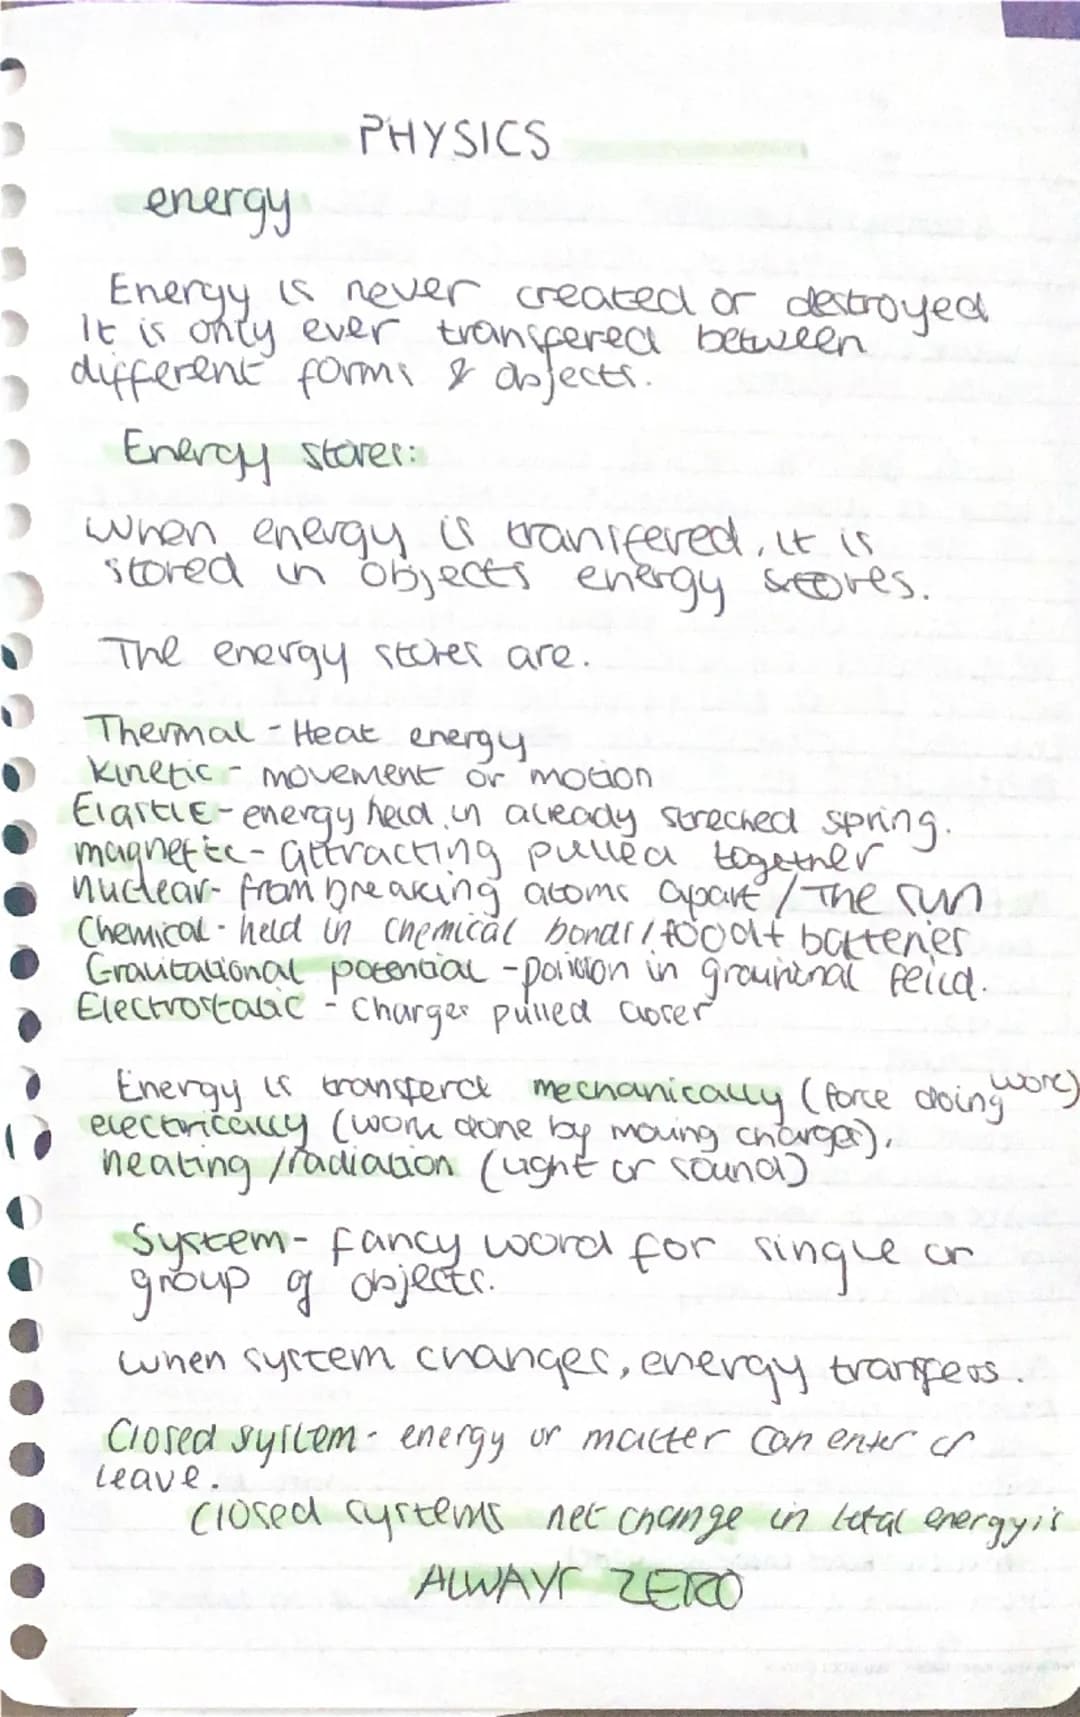 PHYSICS
energy
Energy is never created or destroyed
It is only ever transfered between
different forms & objects.
Energy stores:
when energy is transfered, it is
stored in objects energy stores.
The energy stores are.
Thermal - Heat energy
Kinetic - movement or motion
Elastic - energy held in already streched spring.
magnetic - attracting pulled together
nuclear - from breaking atoms apart / The sun
Chemical - held in chemical bonds / food + batteries
Gravitational potential - in feild.
Electrostatic - Charges pulled closer
Energy is transferd mechanically (force doing work)
electrically (work done by moving charges),
heating / radiation (light or sound)
System - fancy word for single or
group of objects.
when system changes, energy transfers.
Closed system - energy or matter can enter or
leave.
Closed systems net change in total energy is
ALWAYS ZERO